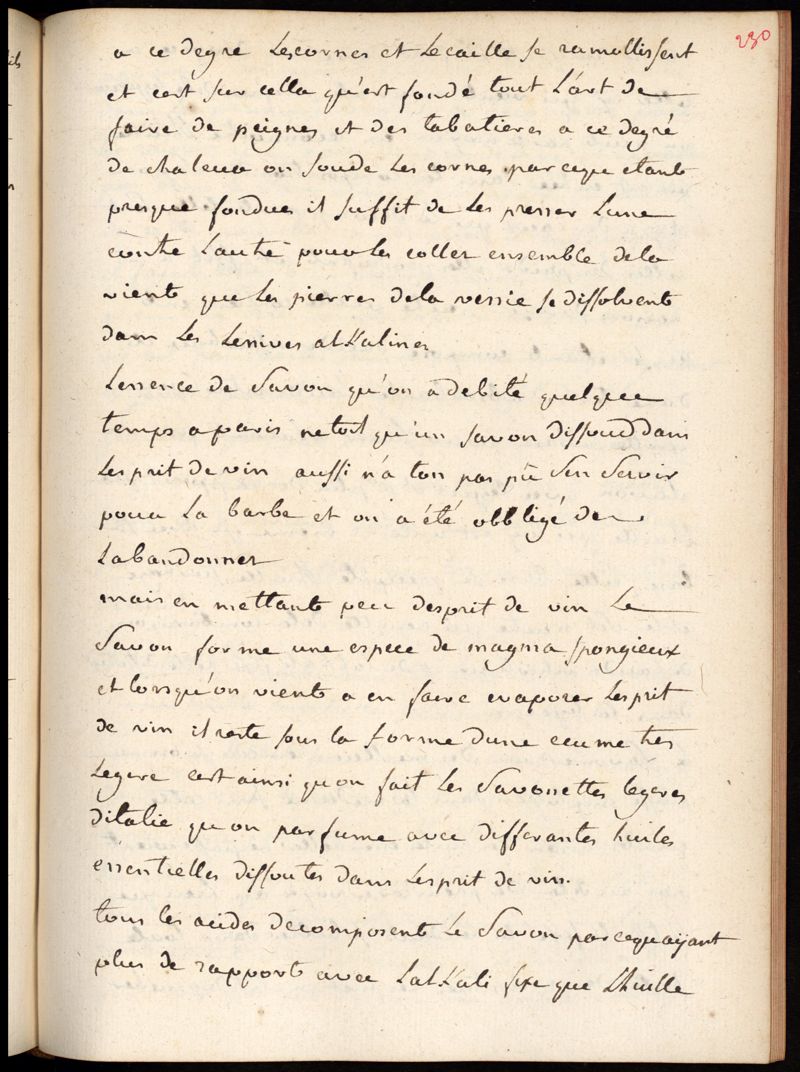 230
a ce degré Lescornes et Lecaille se ramollissent
et cest sur cella qu'est fondé tout L'art de
faire de peignes et des tabatieres a ce degré
de chaleur on soude Les cornes parceque etant
presque fondues il suffit de Les presser Lune
contre Lautre pour les coller ensemble dela
vient que Les pierres dela vessie se dissolvent
dans Les Lessives alKalines
Lessence de Savon qu'on a debité quelque
temps a paris netoit qu'un savon dissoud dans
Lesprit de vin aussi n'a ton pas pû Sen Servir
pour La barbe et on a été obbligé de
Labandonner
mais en mettant peu desprit de vin Le
Savon forme une espece de magma spongieux
et lorsqu'on vient a en faire evaporer Lesprit
de vin il reste sous la forme dune ecume tres
Legere cest ainsi quon fait Les Savonettes legeres
ditalie quon parfume avec differantes huiles
essentielles dissoutes dans Lesprit de vin.
tous les acides decomposent Le Savon parcequayant
plus de rapport avec LalKali fixe que L'huille